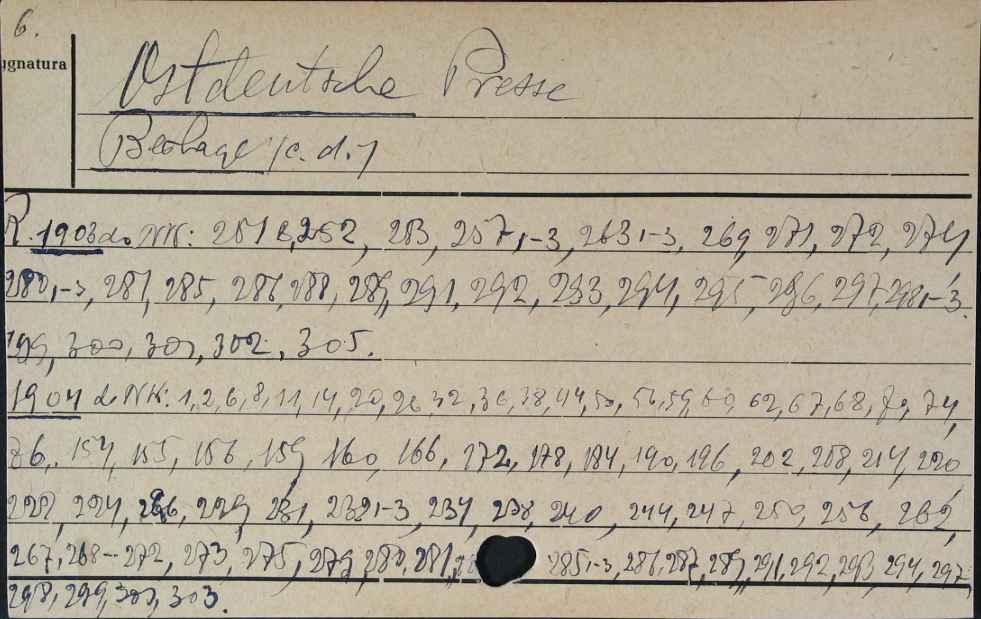 6.
ygnatura
Ostdeutsche Presse
Beilage (c.d.)
R. 1903 do NN: 251 252, 253, 257,1-3, 263,1-3, 269, 271, 272, 274,
280,1-3, 281, 285, 286, 288, 289, 291, 292, 293, 294, 295 296, 297, 298,1-3.
199, 300, 301, 302, 305.
1904 do NN: 1, 2, 6, 8, 11, 14, 20, 26, 32, 36, 38, 44, 50, 56, 59, 60, 62, 67, 68, 70, 74,
76, 154, 155, 156, 159 160, 166, 172, 178, 184, 190, 196, 202, 208, 214, 220
222, 224, 226, 229, 231, 232,1-3, 234, 238, 240, 244, 247, 250, 256, 262,
267, 268-- 272, 273, 275, 279, 280, 281, 285,1-3, 286, 287, 289, 291, 292, 293, 294, 297,
298, 299, 301, 303.